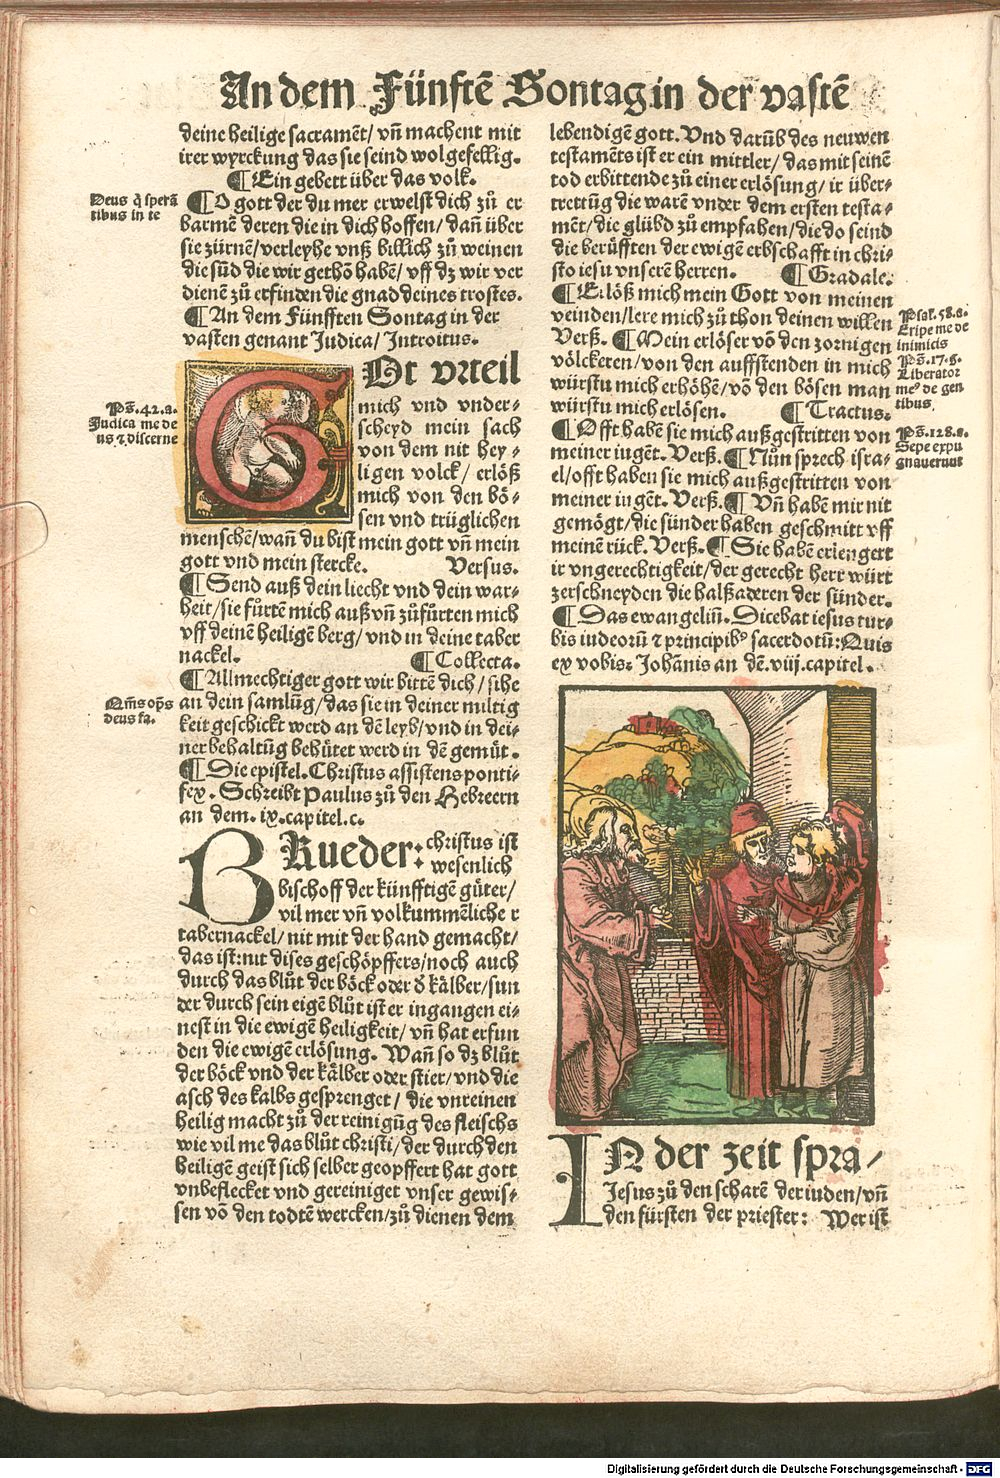 An dem Fünftẽ Sontag in der vastẽ
deine heilige sacramẽt/ vñ machent mit
irer wyrckung das sie seind wolgefellig.
¶ Ein gebett über das volk.
Deus q̃ sperã
tibus in te
¶ O gott der du mer erwelst dich zů er
barmẽ deren die in dich hoffen/ dañ über
sie zürnẽ/verleyhe vnß billich zů weinen
die sünd die wir gethõ habẽ/ vff dz wir ver
dienẽ zů erfinden die gnad deines trostes.
¶ An dem Fünfften Sontag in der
vasten genant Judica/ Introitus.
GOt vrteil
Ps̃.42.a.
Judica me de
us ⁊ discerne
mich vnd vnder⸗
scheyd mein sach
von dem nit hey⸗
ligen volck/ erlöß
mich von den bö⸗
sen vnd trüglichen
menschẽ/wañ du bist mein gott vñ mein
gott vnd mein stercke. Versus.
¶ Send auß dein liecht vnd dein war⸗
heit/sie fůrtẽ mich auß vñ zůfůrten mich
vff deinẽ heiligẽ berg/ vnd in deine taber
nackel. ¶ Collecta.
¶ Allmechtiger gott wir bittẽ dich/ sihe
Om̃s op̃s
deus fa.
an dein samlũg/das sie in deiner miltig
keit geschickt werd an dẽ leyb/vnd in dei⸗
ner behaltũg behütet werd in dẽ gemüt.
¶ Die epistel. Christus assistens ponti⸗
fex. Schreibt Paulus zů den Hebreern
an dem .ix.capitel.c.
BRueder: christus ist
wesenlich
bischoff der künfftigẽ güter/
vil mer vñ volkummẽliche r
tabernackel/ nit mit der hand gemacht/
das ist: nit dises geschöpffers/noch auch
durch das blůt der böck oder d̃ kälber/sun
der durch sein eigẽ blůt ist er ingangen ei⸗
nest in die ewigẽ heiligkeit/ vñ hat erfun
den die ewigẽ erlösung. Wañ so dz blůt
der böck vnd der kälber oder stier/vnd die
asch des kalbs gesprenget/ die vnreinen
heilig macht zů der reinigũg des fleischs
wie vil me das blůt christi/der durch den
heiligẽ geist sich selber geopffert hat gott
vnbeflecket vnd gereiniget vnser gewis⸗
sen võ den todtẽ wercken/zů dienen dem
lebendigẽ gott. Vnd darũb des neuwen
testamẽts ist er ein mittler/das mit seinẽ
tod erbittende zů einer erlösung/ ir über⸗
trettũg die warẽ vnder dem ersten testa⸗
mẽt/die glübd zů empfahen/die do seind
die berůfften der ewigẽ erbschafft in chri⸗
sto iesu vnserẽ herren. ¶ Gradale.
¶ Erlöß mich mein Gott von meinen
veinden/lere mich zů thon deinen willen
Psal.58.a.
Eripe me de
inimicis
Verß. ¶ Mein erlöser võ den zornigen
völckeren/von den auffstenden in mich
Ps̃.17.g.
Liberator
meꝰ de gen
tibus.
würstu mich erhöhẽ/võ den bösen man
würstu mich erlösen. ¶ Tractus.
¶ Offt habẽ sie mich außgestritten von
Ps̃.128.a.
Sepe expu
gnauerunt
meiner iugẽt. Verß. ¶ Nůn sprech isra⸗
el/offt haben sie mich außgestritten von
meiner iugẽt. Verß. ¶ Vñ habẽ mir nit
gemögt/die sünder haben geschmitt vff
meinẽ rück. Verß. ¶ Sie habẽ erlengert
ir vngerechtigkeit/der gerecht herr würt
zerschneyden die halßaderen der sünder.
¶ Das ewangeliũ. Dicebat iesus tur⸗
bis iudeorũ ⁊ principibꝰ sacerdotũ: Quis
ex vobis. Johãnis an dẽ.viij.capitel.
IN der zeit spra/
Jesus zů den scharẽ der iuden/vñ
den fürsten der priester: Wer ist
Digitalisierung gefördert durch die Deutsche Forschungsgemeinschaft - DFG